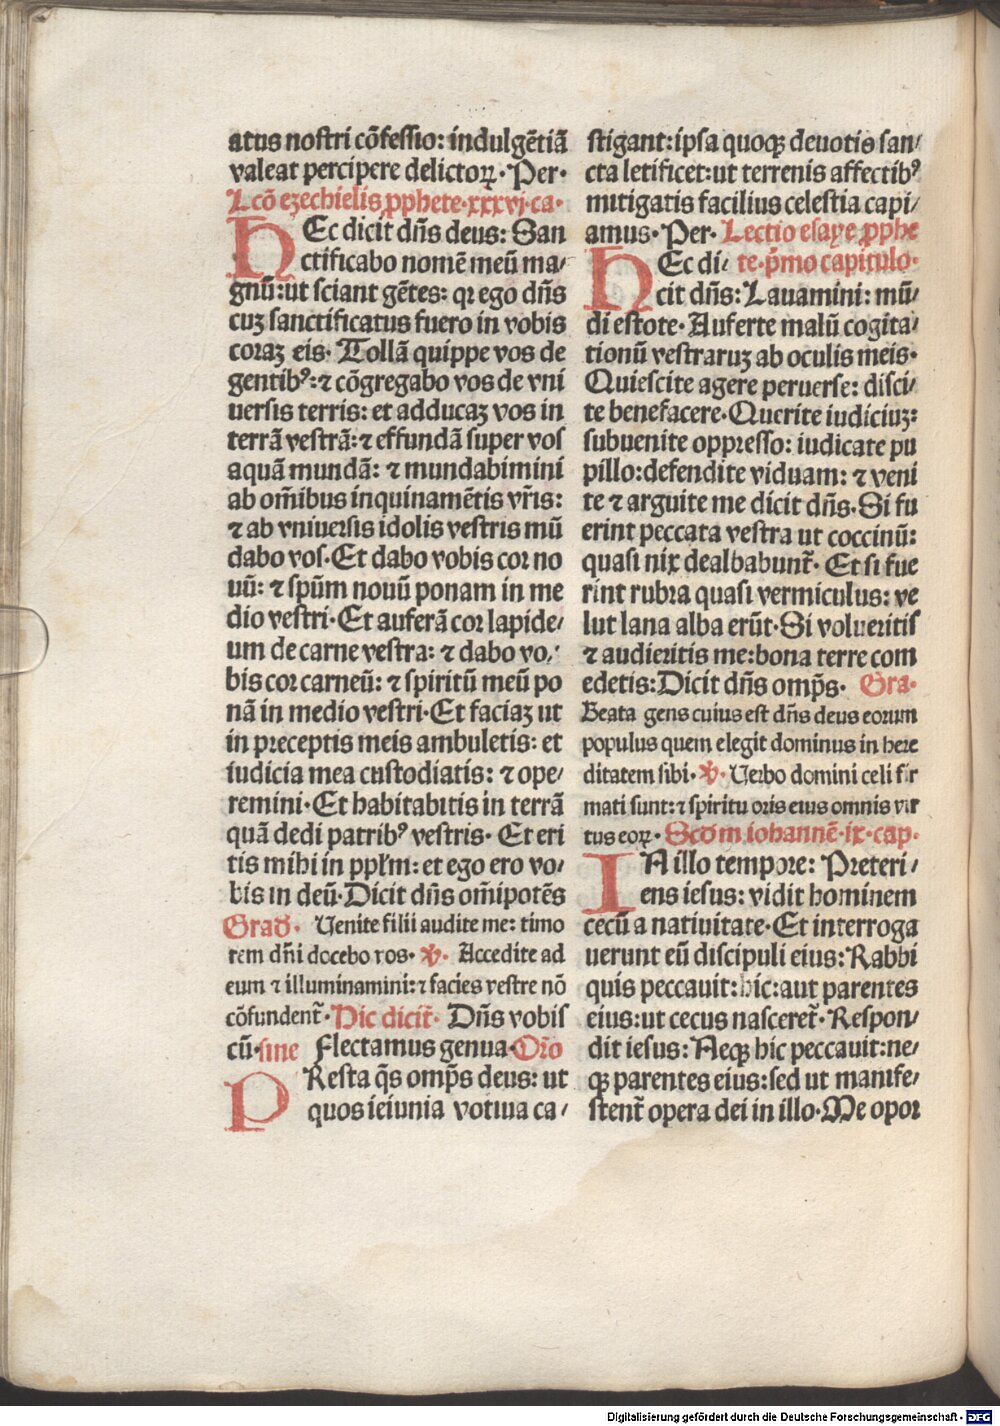 atus nostri cōfessio: indulgētiā
valeat percipere delictoꝝ· Per·
Lcō ezechielis ꝓphete·xxxvj·ca·
HEc dicit dn̄s deus: San
ctificabo nomē meū ma/
gnū:ut sciant gētes: qꝛ ego dn̄s
cuꝫ sanctificatus fuero in vobis
coraꝫ eis· Tollā quippe vos de
gentibꝰ:⁊ cōgregabo vos de vni
uersis terris: et adducaꝫ vos in
terrā vestrā:⁊ effundā super vos
aquā mundā: ⁊ mundabimini
ab om̄ibus inquinamētis vr̄is:
⁊ ab vniuersis idolis vestris mū
dabo vos·Et dabo vobis cor no
uū: ⁊ spūm nouū ponam in me
dio vestri·Et auferā cor lapide/
um de carne vestra: ⁊ dabo vo/
bis cor carneū: ⁊ spiritū meū po
nā in medio vestri·Et faciaꝫ ut
in preceptis meis ambuletis: et
iudicia mea custodiatis: ⁊ ope/
remini·Et habitabitis in terrā
quā dedi patribꝰ vestris· Et eri
tis mihi in ppl̄m: et ego ero vo/
bis in deū·Dicit dn̄s om̄ipotēs
Grad· Uenite filii audite me: timo
rem dn̄i docebo vos· ℣· Accedite ad
eum ⁊ illuminamini:⁊ facies vestre nō
cōfundent̄· Hic dicit̄· Dn̄s vobis
cū·sine Flectamus genua·Oro
PResta q̄s omp̄s deus: ut
quos ieiunia votiua ca/
stigant:ipsa quoqꝫ deuotio san/
cta letificet:ut terrenis affectibꝰ
mitigatis facilius celestia capi/
amus· Per· Lectio esaye ꝓphe
HEc di/ te·p̄mo capitulo·
cit dn̄s: Lauamini: mū/
di estote· Auferte malū cogita/
tionū vestraruꝫ ab oculis meis·
Quiescite agere peruerse: disci/
te benefacere·Querite iudiciuꝫ:
subuenite oppresso: iudicate pu
pillo:defendite viduam: ⁊ veni
te ⁊ arguite me dicit dn̄s·Si fu
erint peccata vestra ut coccinū:
quasi nix dealbabunt̄· Et si fue
rint rubra quasi vermiculus: ve
lut lana alba erūt·Si volueritis
⁊ audieritis me:bona terre com
edetis:Dicit dn̄s omp̄s· Gra·
Beata gens cuius est dn̄s deus eorum
populus quem elegit dominus in here
ditatem sibi· ℣· Uerbo domini celi fir
mati sunt:⁊ spiritu oris eius omnis vir
tus eoꝝ· Scdm iohannē·ix·cap·
IN illo tempore: Preteri/
ens iesus: vidit hominem
cecū a natiuitate·Et interroga
uerunt eū discipuli eius: Rabbi
quis peccauit:hic:aut parentes
eius:ut cecus nasceret̄·Respon/
dit iesus: Neqꝫ hic peccauit:ne/
qꝫ parentes eius:sed ut manife/
stent̄ opera dei in illo·Me opor
Digitalisierung gefördert durch die Deutsche Forschungsgemeinschaft - DFG